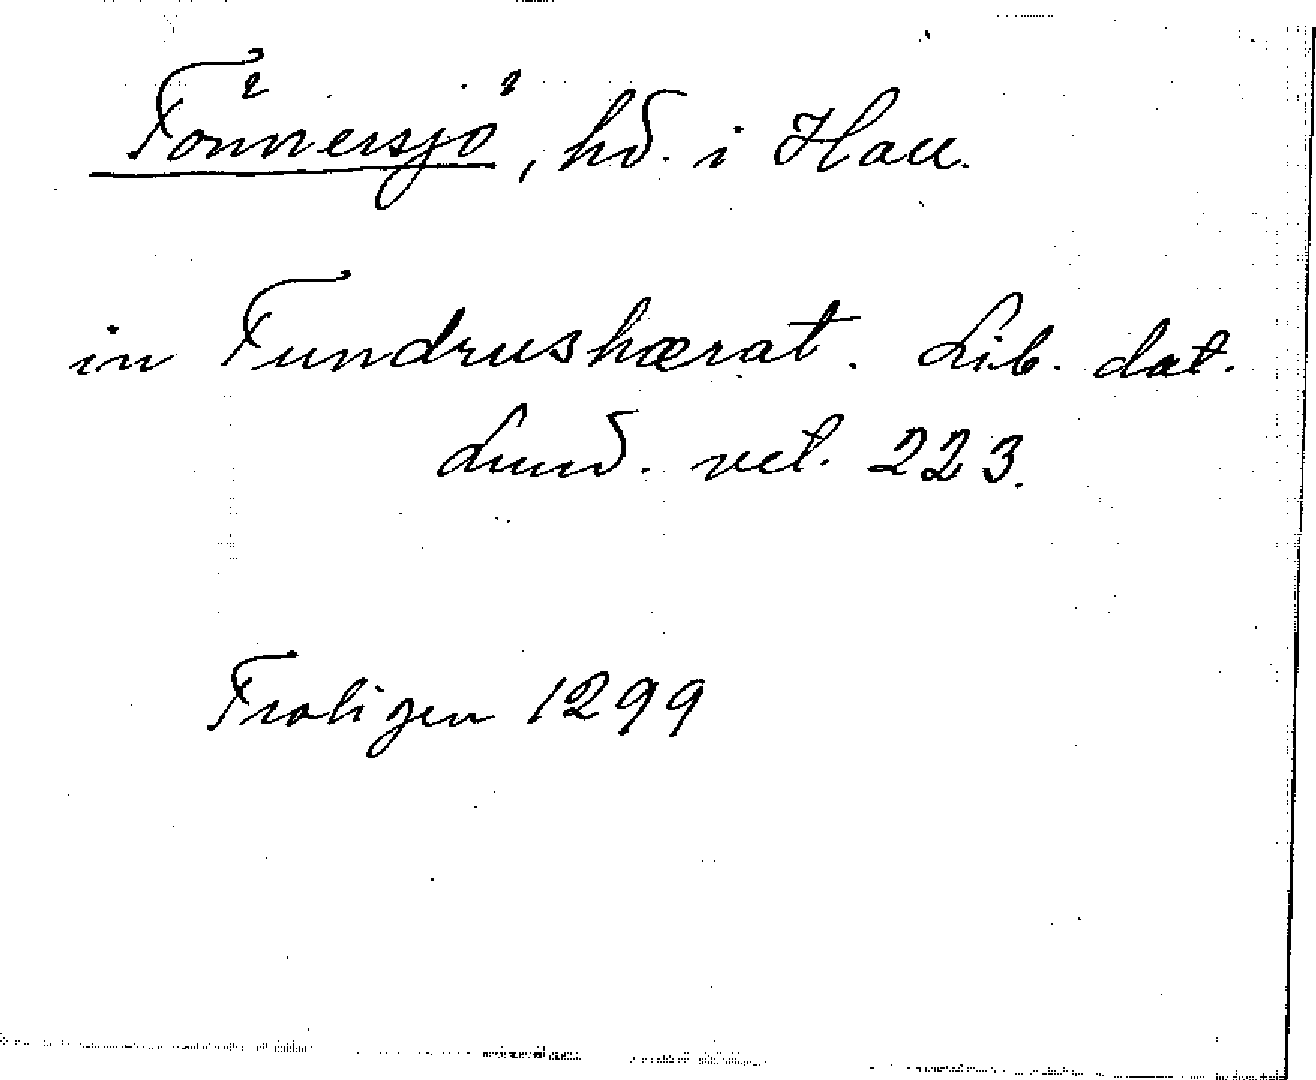 Tönnersjö, hd. i Hall.
in Tundrushærat. Lib. dat.
Lund. vet. 223.
Troligen 1299